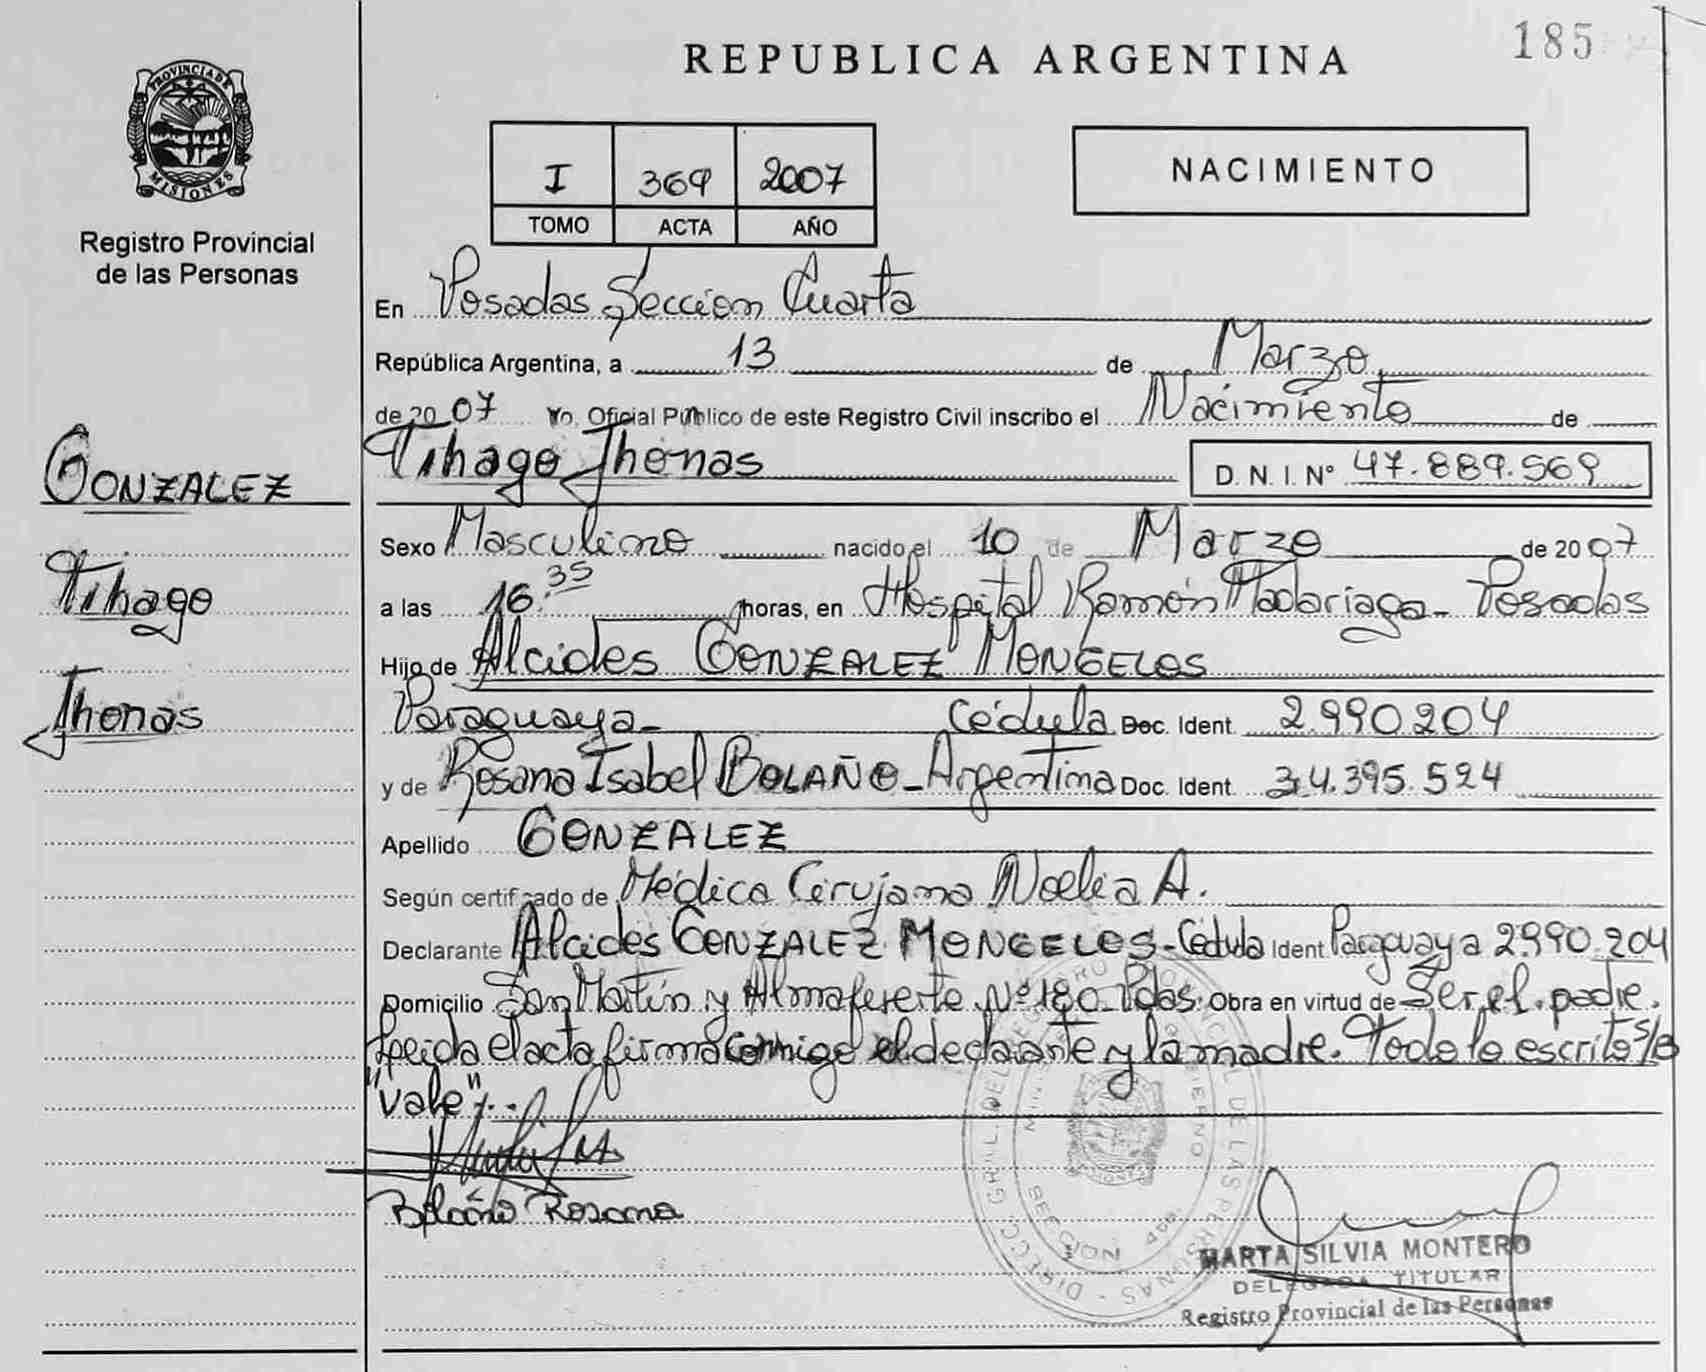 185
REPUBLICA ARGENTINA
PROVINCIA DE
MISIONES
Registro Provincial
de las Personas
I 369 2007
TOMO ACTA AÑO
NACIMIENTO
En Posadas Sección Cuarta
República Argentina, a 13 de Marzo
de 2007 Yo, Oficial Público de este Registro Civil inscribo el Nacimiento de
Tihago Jhonas D. N. I. Nº 47.889.569
GONZALEZ
Tihago
Jhonas
Sexo Masculino nacido el 10 de Marzo de 2007
a las 16:35 horas, en Hospital Ramón Madariaga - Posadas
Hijo de Alcides GONZALEZ MONGELOS
Paraguaya - Cédula Doc. Ident. 2.990.204
y de Rosana Isabel BOLAÑO - Argentina Doc. Ident. 34.395.524
Apellido GONZALEZ
Según certificado de Médica Cirujana Noelia A.
Declarante Alcides GONZALEZ MONGELOS - Cédula Ident Paraguaya 2990.204
Domicilio San Martín y Almafuerte Nº 180. Pdas. Obra en virtud de Ser el padre.
Leída el acta firma conmigo el declarante y la madre. Todo lo escrito s/b
"vale".
Bolaño Rosana
MARTA SILVIA MONTERO
DELEGADA TITULAR
Registro Provincial de las Personas